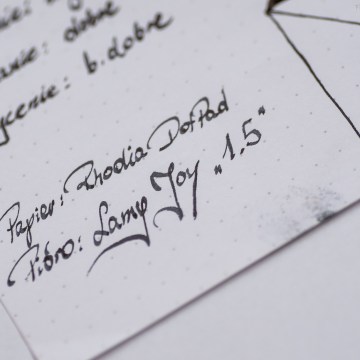 dobre
b.dobre
Papier: Rhodia DotPad
Pióro: Lamy Joy „1,5"